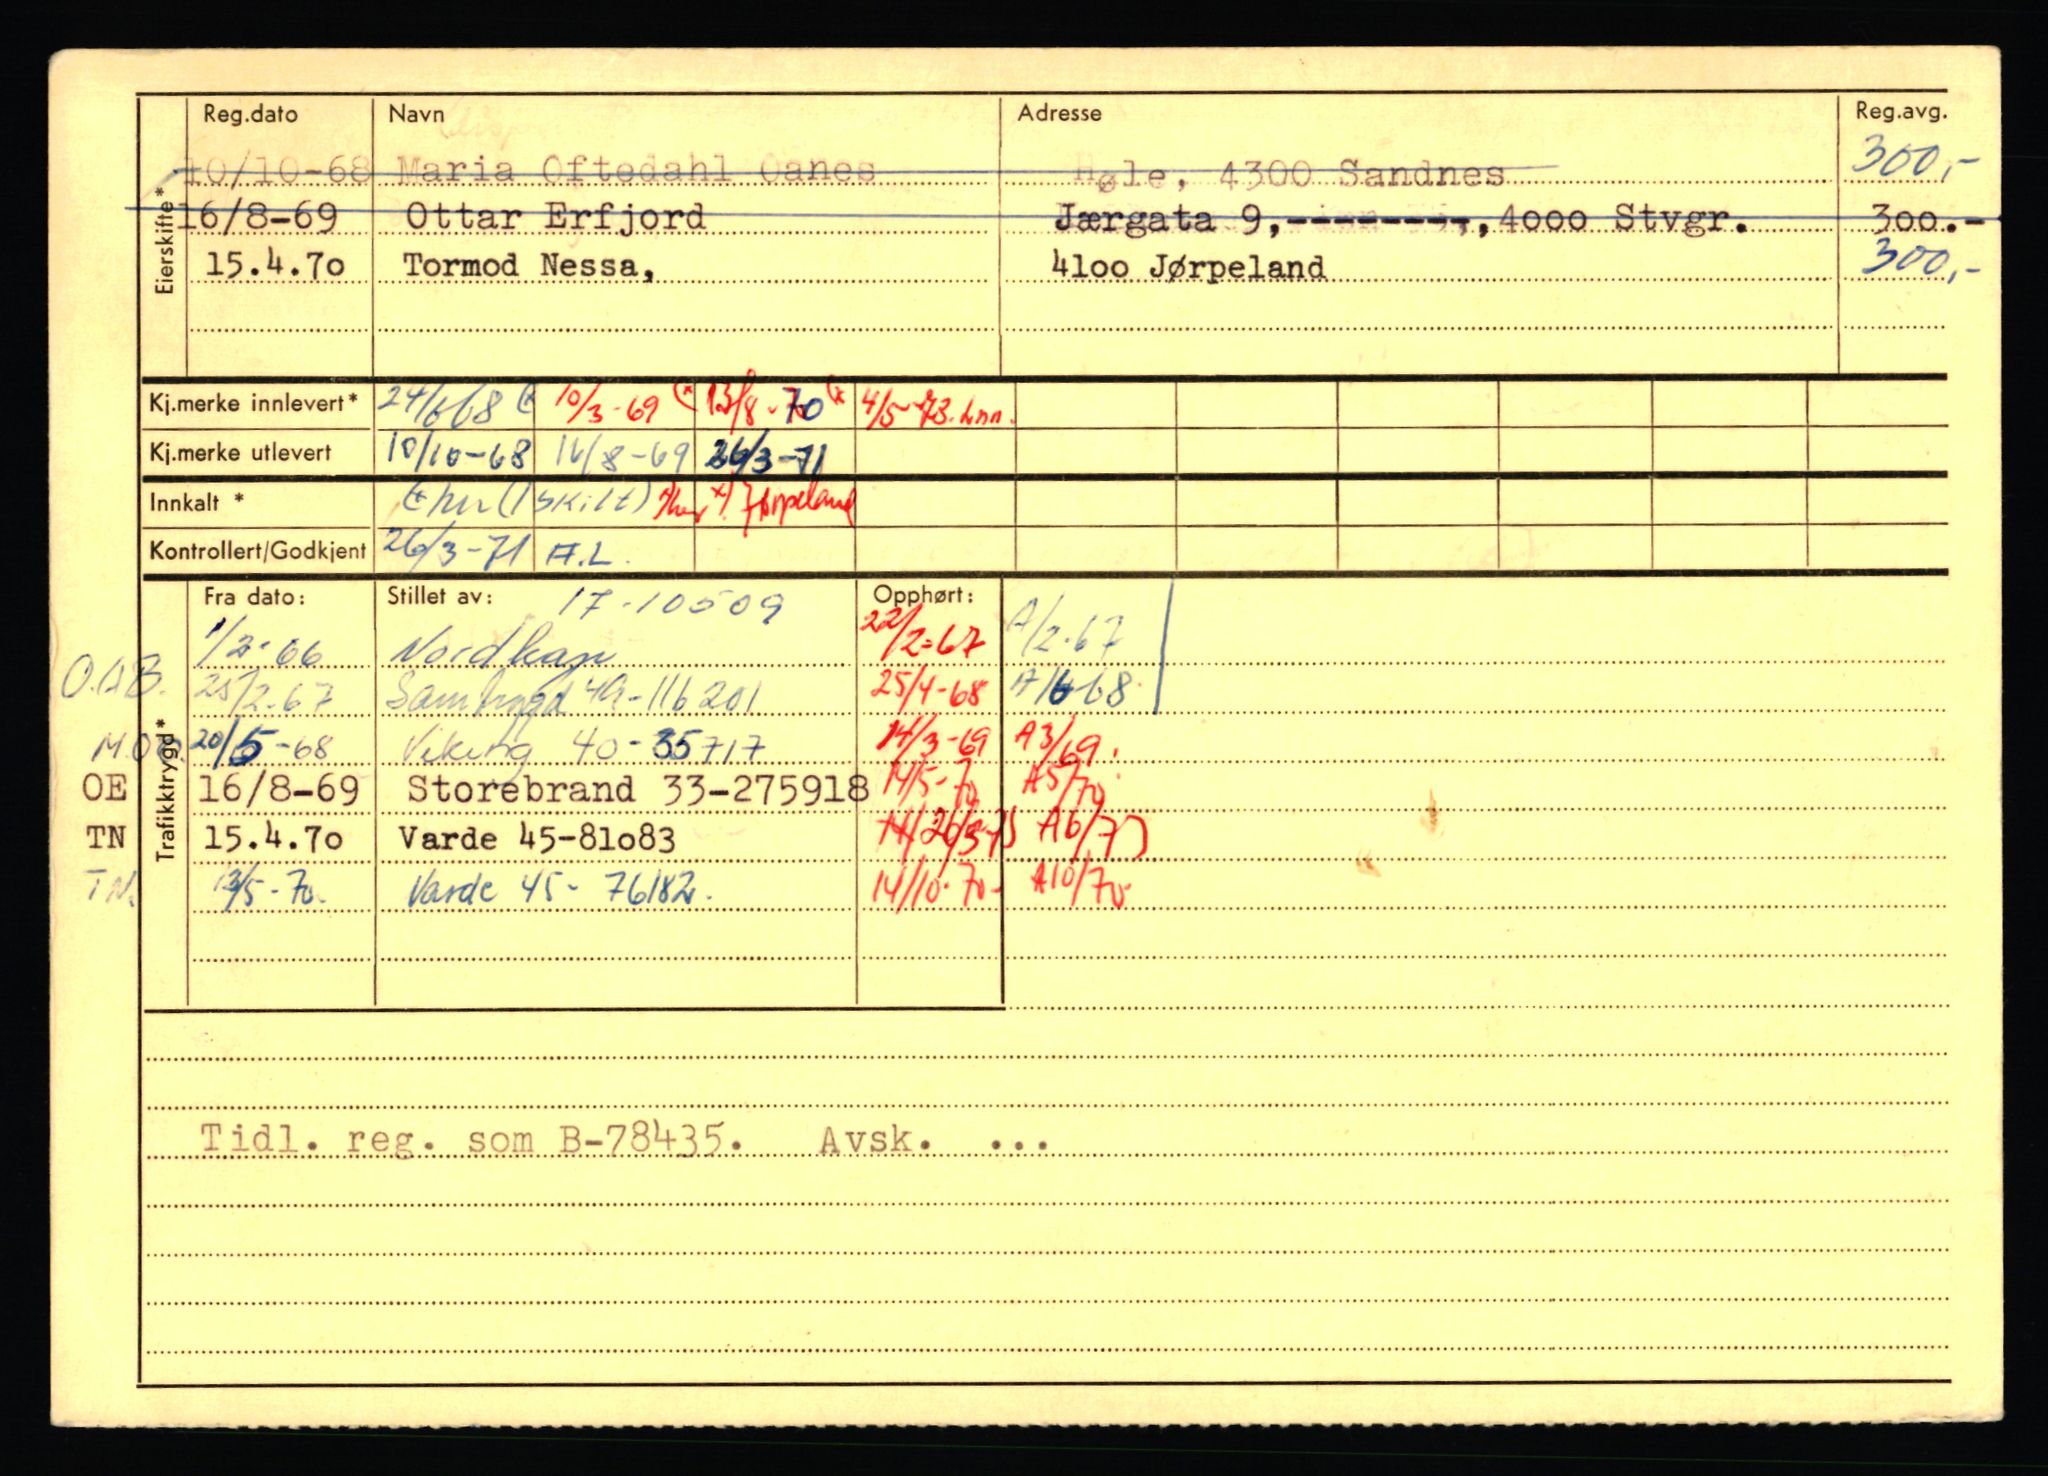 Reg.dato Navn Adresse Reg.avg.
10/10-68 Maria Oftedahl Oanes Høle, 4300 Sandnes 300,-
16/8-69 Ottar Erfjord Jærgata 9,---------,4000 Stvgr. 300.-
15.4.7o Tormod Nessa, 41oo Jørpeland 300,-
Eierskifte*
Kj.merke innlevert* 24/6 68 (x 10/3-69 (x 13/8-70 (x 4/5-73. Inn.
Kj.merke utlevert 10/10-68 16/8-69 26/3-71
Innkalt * (1 skilt) x/ Jørpeland
Kontrollert/Godkjent 26/3-71 A.L.
Trafikktrygd*
Fra dato: Stillet av: 17-10509 Opphørt:
1/2-66 Nordkap 22/2-67 A/2-67
O.A.B. 25/2-67 Sambygd 49-116201 25/4-68 A/6-68
M.O.O. 20/5-68 Viking 40-35717 14/3-69 A3/69.
OE 16/8-69 Storebrand 33-275918 14/5-70 A5/70
TN 15.4.7o Varde 45-81o83 A6/7
TN. 13/5-70. Varde 45-76182. 14/10-70- A10/70
Tidl. reg. som B-78435. Avsk. ...